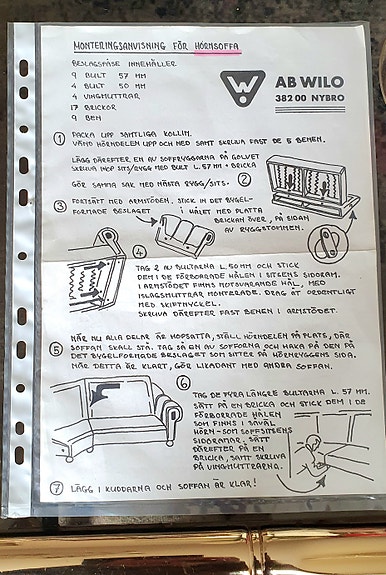 MONTERINGSANVISNING FÖR HÖRNSOFFA
BESLAGSPÅSE INNEHÅLLER
9 BULT 57 MM
4 BULT 50 MM
4 VINGMUTTRAR
17 BRICKOR
9 BEN
W
AB WILO
382 00 NYBRO
1 PACKA UPP SAMTLIGA KOLLIN.
VÄND HÖRNDELEN UPP OCH NED SAMT SKRUVA FAST DE 5 BENEN.
LÄGG DÄREFTER EN AV SOFFRYGGARNA PÅ GOLVET
SKRUVA IHOP SITS/RYGG MED BULT L. 57 MM + BRICKA
GÖR SAMMA SAK MED NÄSTA RYGG/SITS. 2
3 FORTSÄTT MED ARMSTÖDEN, STICK IN DET BYGEL-
FORMADE BESLAGET I HÅLET MED PLATTA
BRICKAN ÖVER, PÅ SIDAN
AV RYGGSTOMMEN.
4
TAG 2 AV BULTARNA L. 50 MM OCH STICK
DEM I DE FÖRBORRADE HÅLEN I SITSENS SIDORAM.
I ARMSTÖDET FINNS MOTSVARANDE HÅL, MED
ISLAGSMUTTRAR MONTERADE. DRAG ÅT ORDENTLIGT
MED SKIFTNYCKEL.
SKRUVA DÄREFTER FAST BENEN I ARMSTÖDET.
5 NÄR NU ALLA DELAR ÄR HOPSATTA, STÄLL HÖRNDELEN PÅ PLATS, DÄR
SOFFAN SKALL STÅ. TAG SÅ EN AV SOFFORNA OCH HAKA PÅ DEN PÅ
DET BYGELFORMADE BESLAGET SOM SITTER PÅ HÖRNRYGGENS SIDA.
NÄR DETTA ÄR KLART, GÖR LIKADANT MED ANDRA SOFFAN.
6
TAG DE FYRA LÄNGRE BULTARNA L. 57 MM.
SÄTT PÅ EN BRICKA OCH STICK DEM I DE
FÖRBORRADE HÅLEN
SOM FINNS I SÅVÄL
HÖRN- SOM SOFFSITSENS
SIDORAMAR. SÄTT
DÄREFTER PÅ EN
BRICKA, SAMT SKRUVA
PÅ VINGMUTTRARNA.
7 LÄGG I KUDDARNA OCH SOFFAN ÄR KLAR!